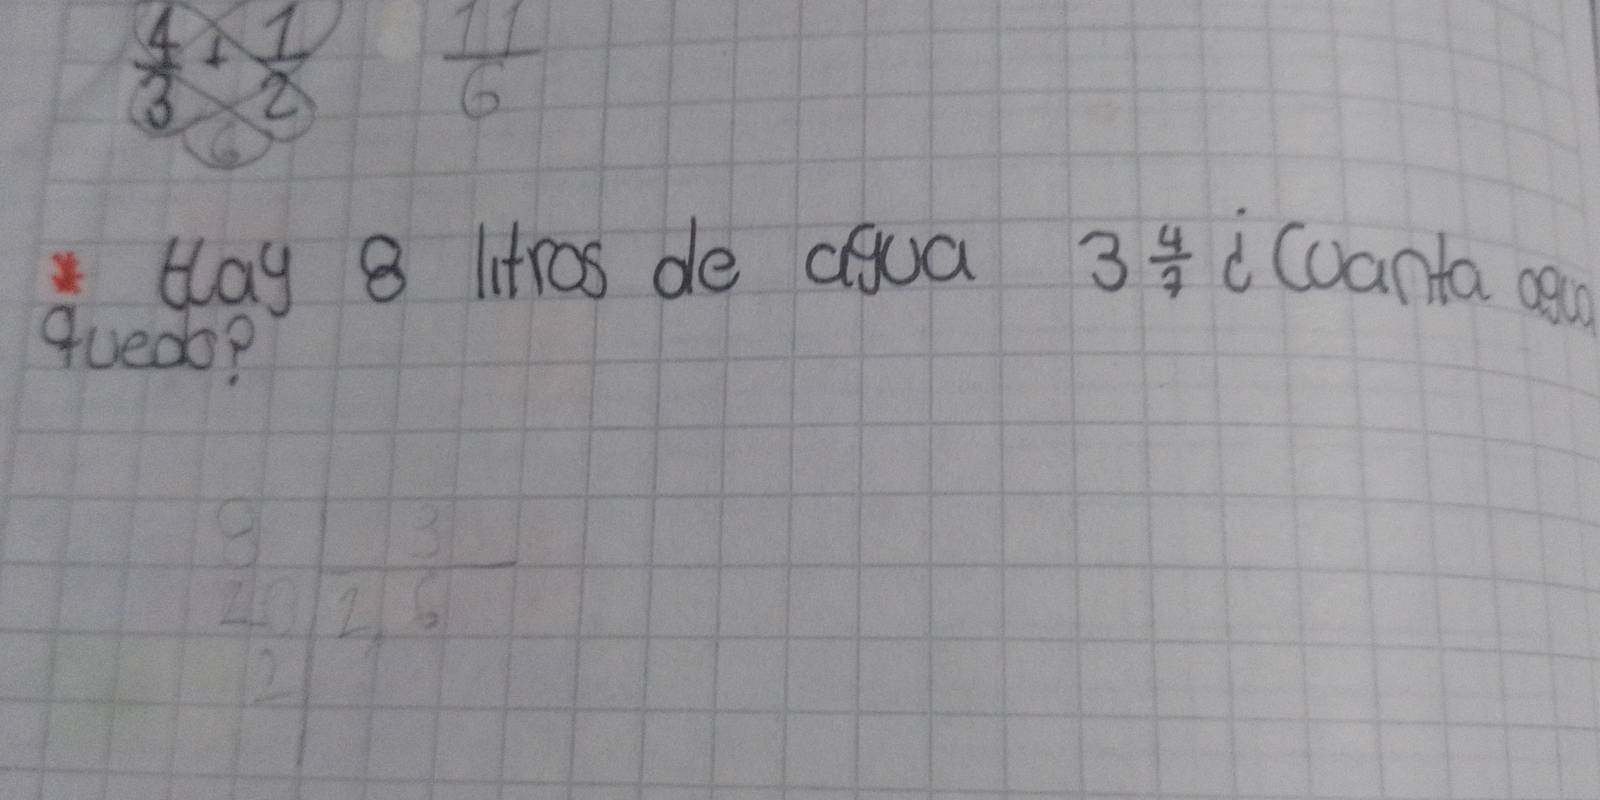 4/3 + 1/2 11/6
6
* Hay 8 litros de agua 3 4/7 ¿Cuanta agua
quedo?
9 3
20 2,6
2